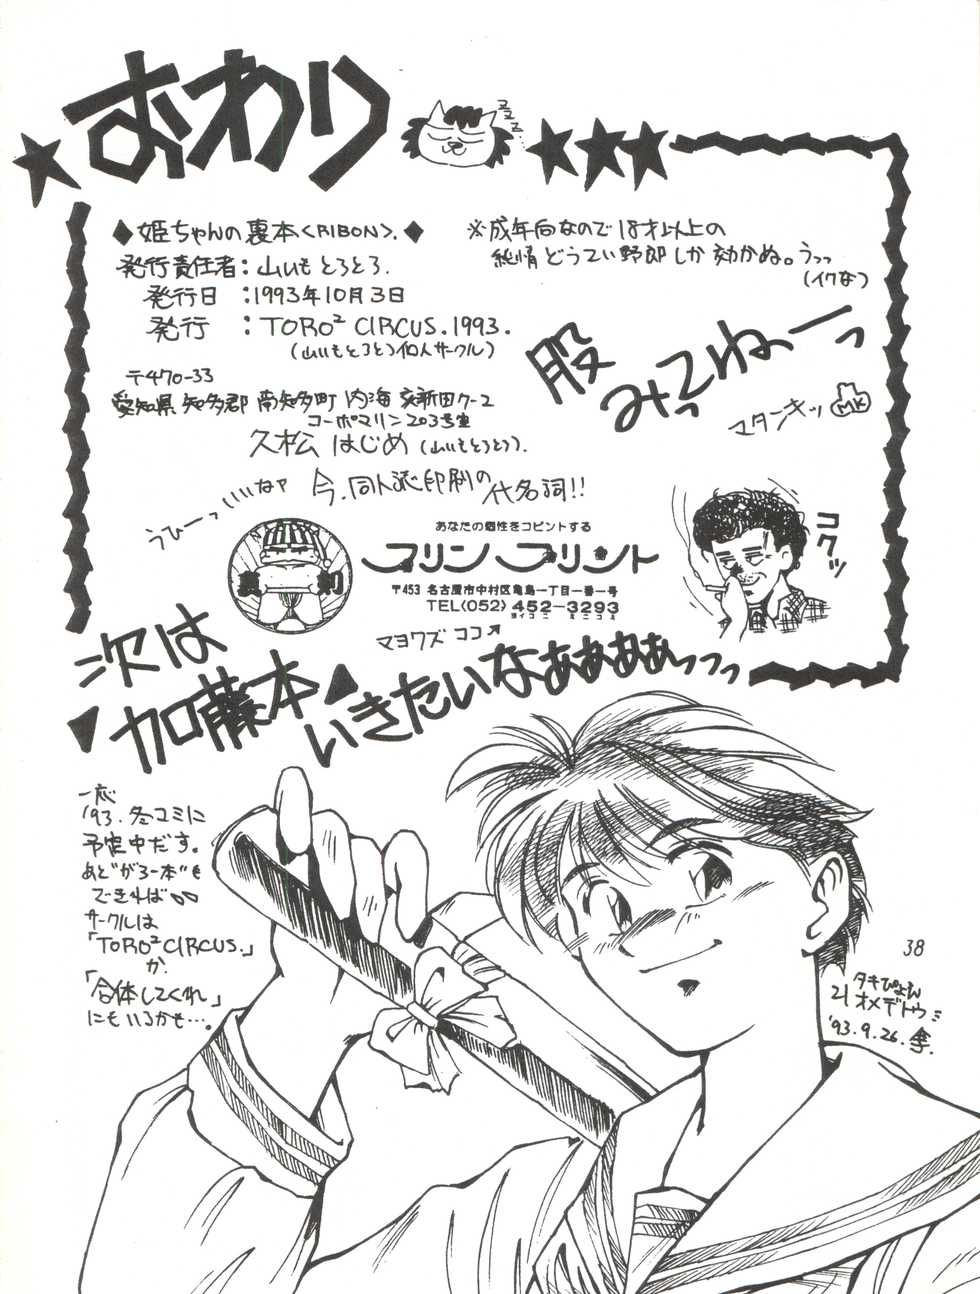 おわり
ZZZ
◆姫ちゃんの裏本<RIBON>.◆
発行責任者:山いもとろろ.
発行日:1993年10月3日
発行:TORO² CIRCUS.1993.
(山いもとろろ個人サークル)
〒470-33
愛知県 知多郡 南知多町 内海
コーポマリン203号室
久松 はじめ(山いもとろろ).
※成年向なので18才以上の
純情どうてい野郎しか効かぬ。うっっ
(イクな)
股
みってねーっ
マタンキッ
MK
うひーっいいなァ
今、同人派印刷の
代名詞!!
裏 刷
あなたの個性をコピントする
プリンプリント
〒453 名古屋市中村区亀島一丁目一番一号
TEL(052)452-3293
マヨワズ ココ↗
コクッ
次は
加藤本
いきたいなぁぁぁぁっっっ
一応
'93.冬コミに
予定中だす。
あど"がろー本"も
できれば
サークルは
「TORO² CIRCUS.」
か.
「合体してくれ」
にもいるかも…。
38
タキぴょん
21オメデトウ
'93.9.26.